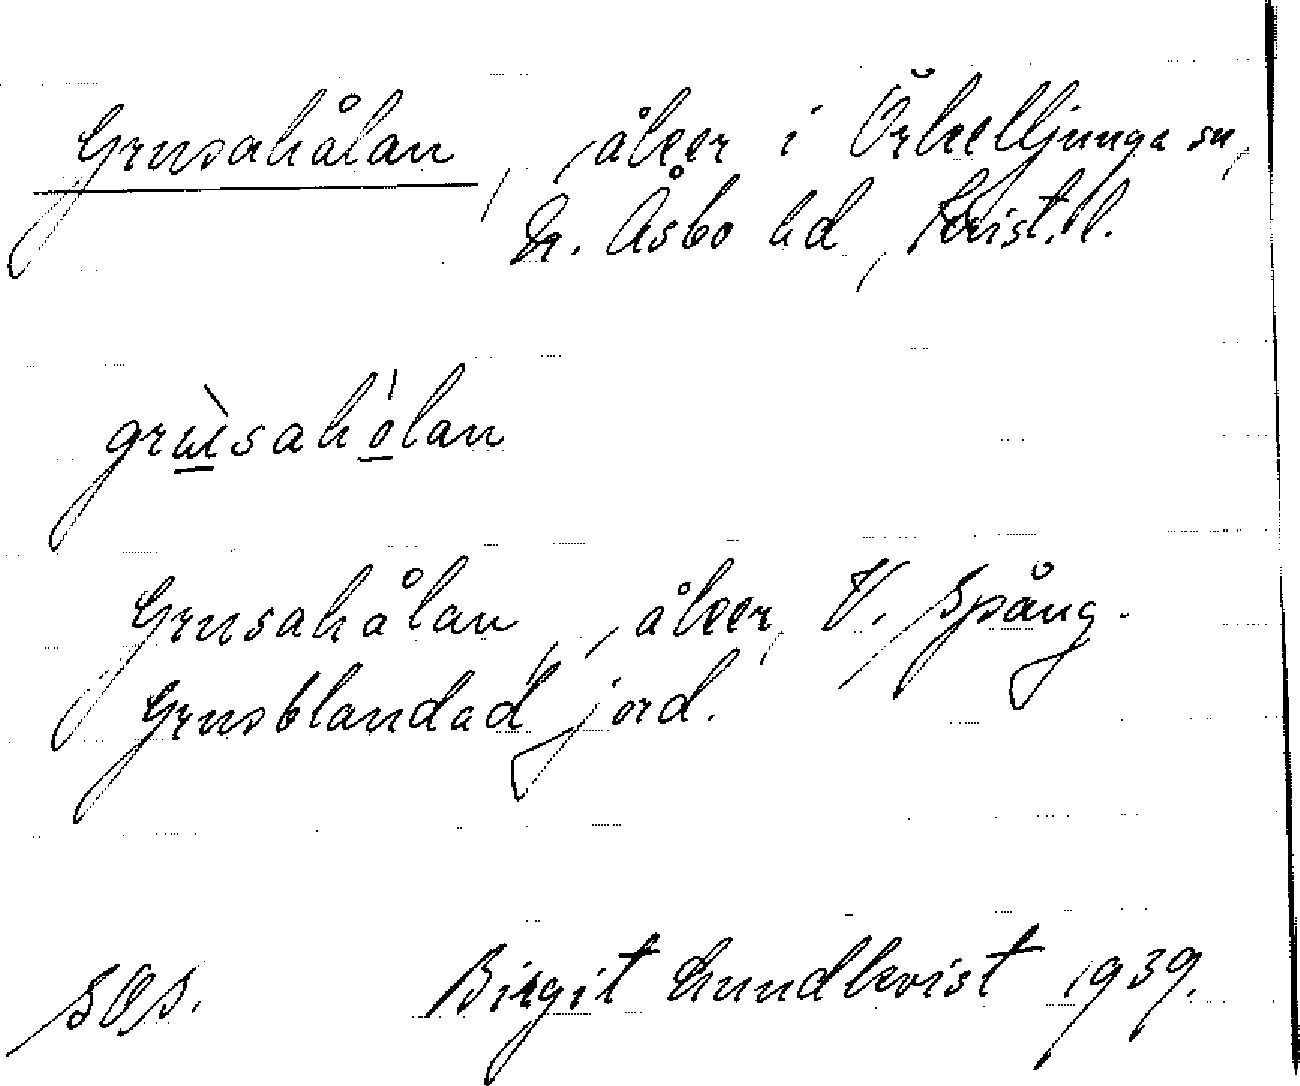 Grusahålan, åker i Örkelljunga sn,
N. Åsbo hd, Krist. l.
grùsahólan
Grusahålan, åker, V. Spång.
Grusblandad jord.
SOS. Birgit Lundkvist 1939.